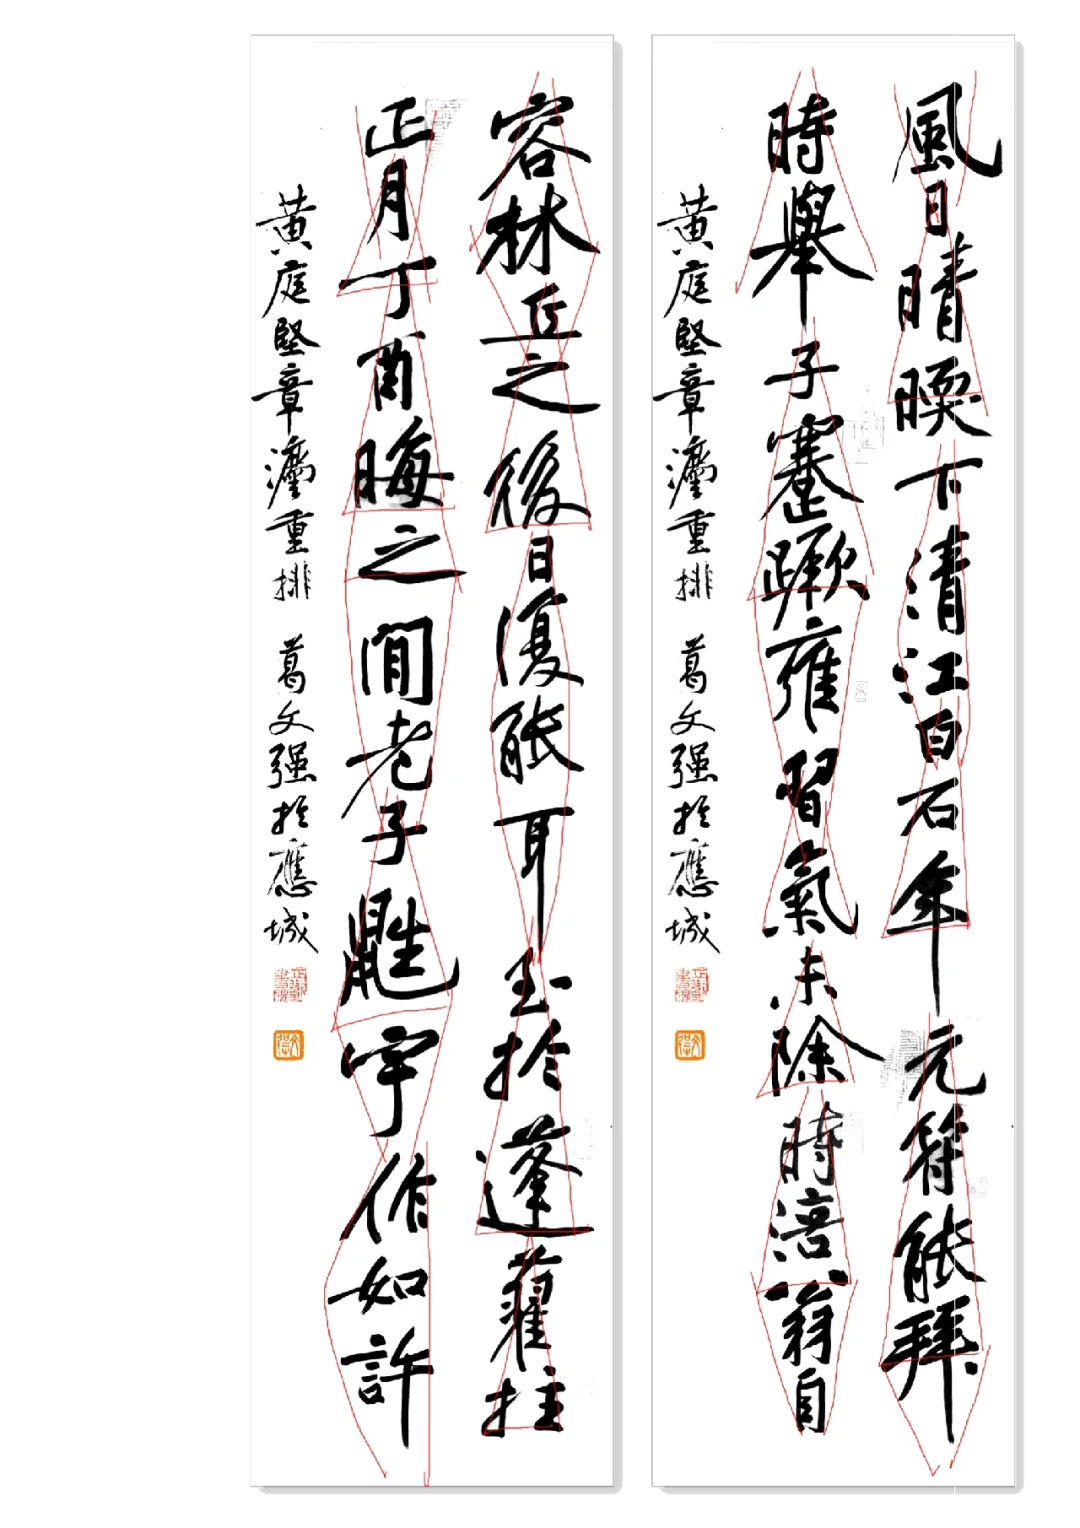 風日晴暖下清江白石年元符能拜
時舉子蹇蹶雍習氣未除時涪翁自
黃庭堅章灋重排 葛文强於應城
容林丘之後日復能耳至於蓬藋拄
正月丁酉晦之間老子鼪宇作如許
黃庭堅章灋重排 葛文强於應城